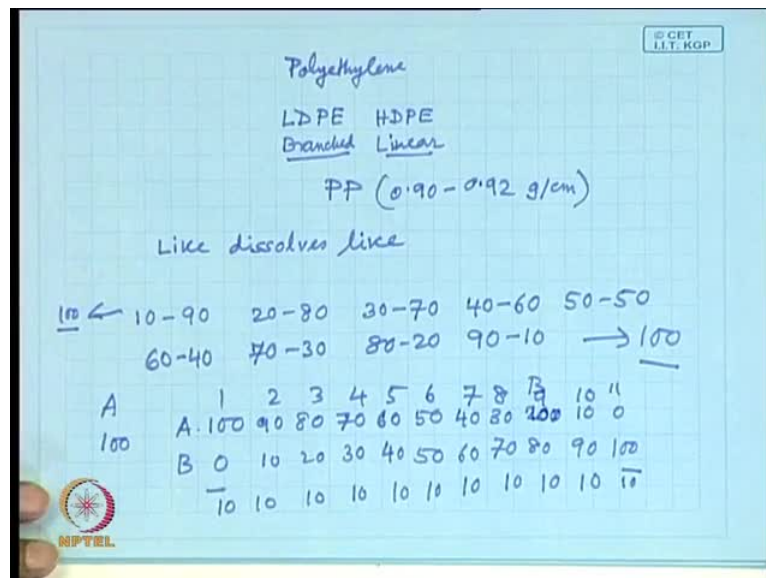 © CET
I.I.T. KGP
Polyethylene
LDPE HDPE
Branched Linear
PP (0.90 - 0.92 g/cm)
Like dissolves like
100 ← 10-90 20-80 30-70 40-60 50-50
60-40 70-30 80-20 90-10 → 100
A 1 2 3 4 5 6 7 8 9 10 11
100 A. 100 90 80 70 60 50 40 30 200 10 0
B 0 10 20 30 40 50 60 70 80 90 100
10 10 10 10 10 10 10 10 10 10 10
NPTEL